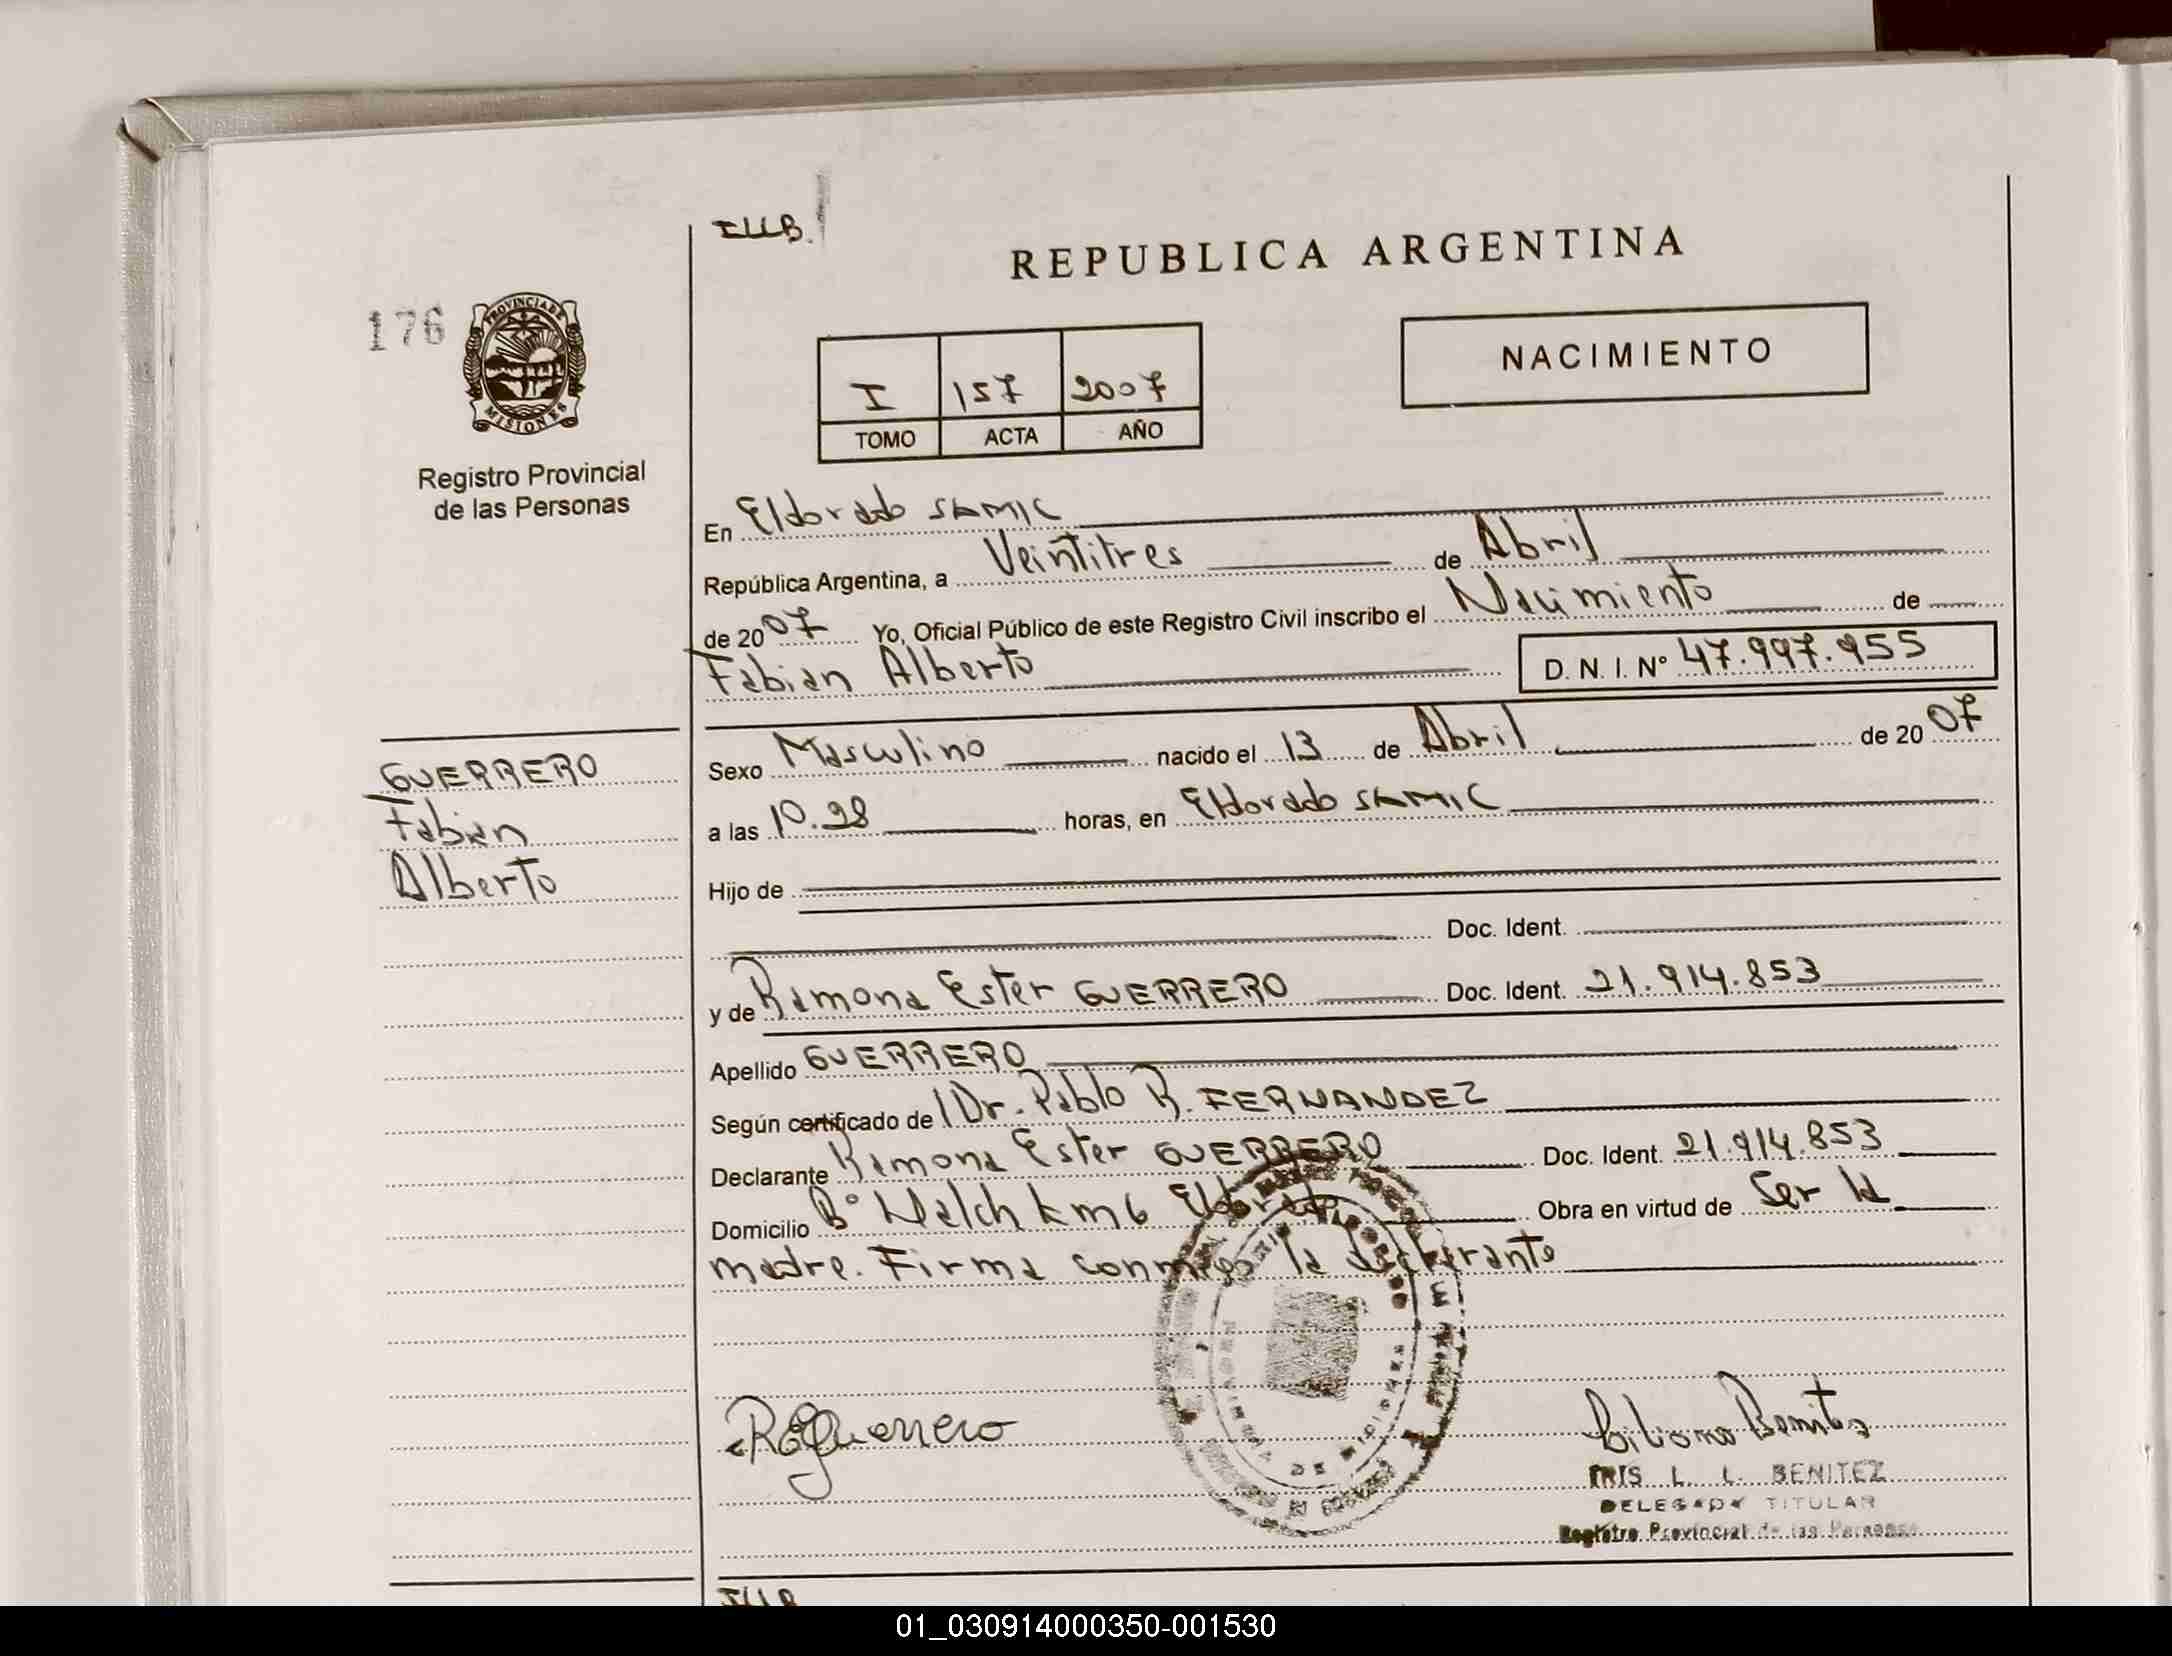 ILLB.
REPUBLICA ARGENTINA
176
PROVINCIA DE
MISIONES
Registro Provincial
de las Personas
I 157 2007
TOMO ACTA AÑO
NACIMIENTO
En Eldorado SAMIC
República Argentina, a Veintitres de Abril
de 2007 Yo, Oficial Público de este Registro Civil inscribo el Nacimiento de
Fabian Alberto D. N. I. Nº 47.997.955
GUERRERO
Fabian
Alberto
Sexo Masculino nacido el 13 de Abril de 2007
a las 10.28 horas, en Eldorado SAMIC
Hijo de
Doc. Ident.
y de Ramona Ester GUERRERO Doc. Ident. 21.914.853
Apellido GUERRERO
Según certificado de Dr. Pablo R. FERNANDEZ
Declarante Ramona Ester GUERRERO Doc. Ident. 21.914.853
Domicilio Bº Walch km 6 Eldorado Obra en virtud de Ser la
madre. Firma conmigo la declarante
REGuerrero
Liliana Benitez
IRIS L. L. BENITEZ
DELEGADA TITULAR
Registro Provincial de las Personas
ILLB
01_030914000350-001530